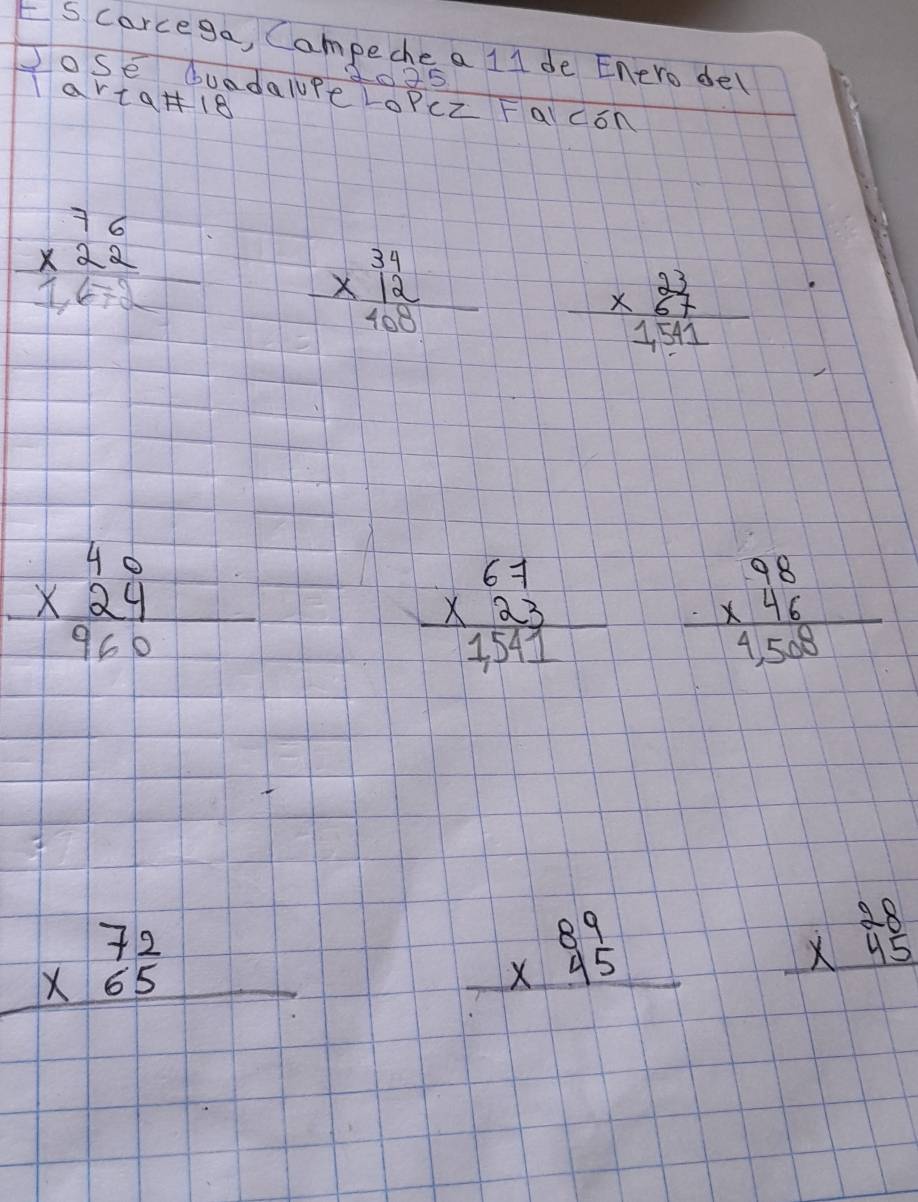 Escarcega, Campeche a 11 de Enero del
2025
José Guadalupe Lopez Falcón
Tarea #18
76
x 22
1,672
34
x 12
408
23
x 67
1,541
40
x 24
960
67
x 23
1,541
98
x 46
4,508
72
x 65
89
x 45
28
x 45